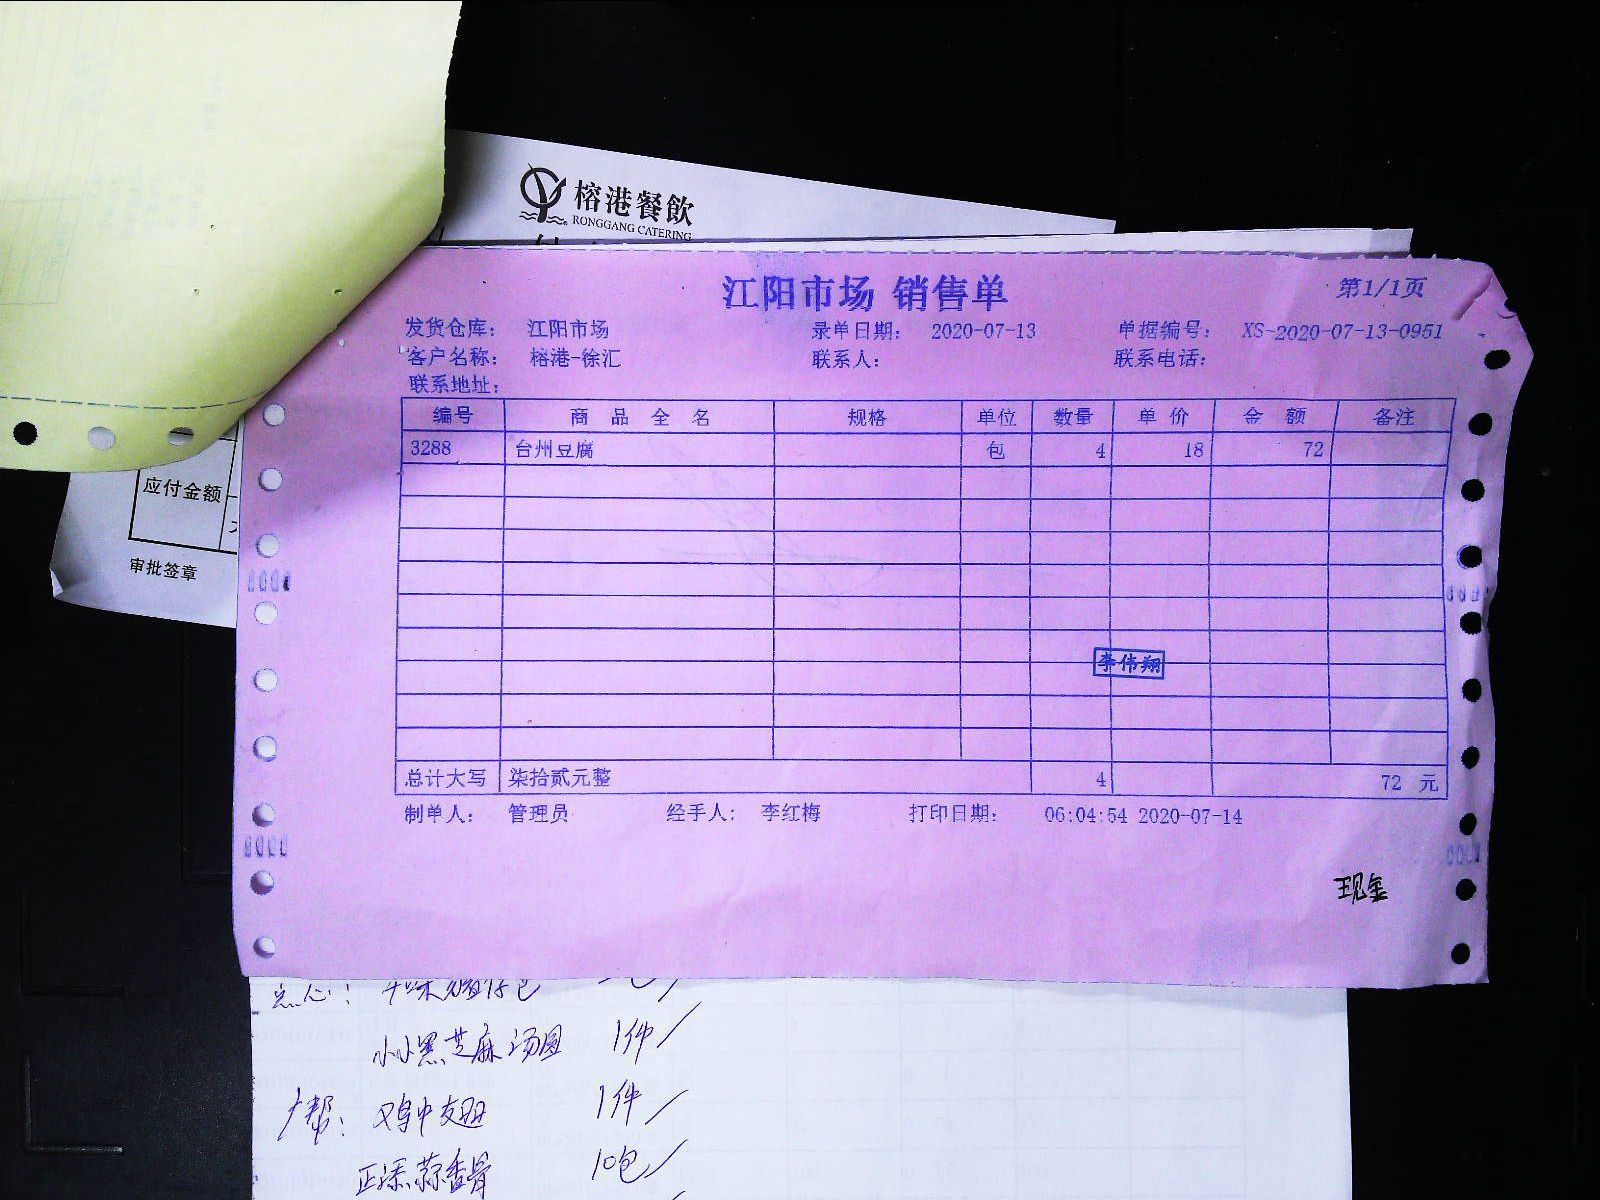 榕港餐飲
RONGGANG CATERING
江阳市场 销售单
第1/1页
发货仓库： 江阳市场 录单日期： 2020-07-13 单据编号： XS-2020-07-13-0951
客户名称： 榕港-徐汇 联系人： 联系电话：
联系地址：
编号 商品全名 规格 单位 数量 单价 金额 备注
3288 台州豆腐 包 4 18 72
应付金额
审批签章
李伟翔
总计大写 柒拾贰元整 4 72 元
制单人： 管理员 经手人： 李红梅 打印日期： 06:04:54 2020-07-14
现金
点心：
小小黑芝麻汤圆 1件
广帮： 鸡中翅 1件
蒜香骨 10包